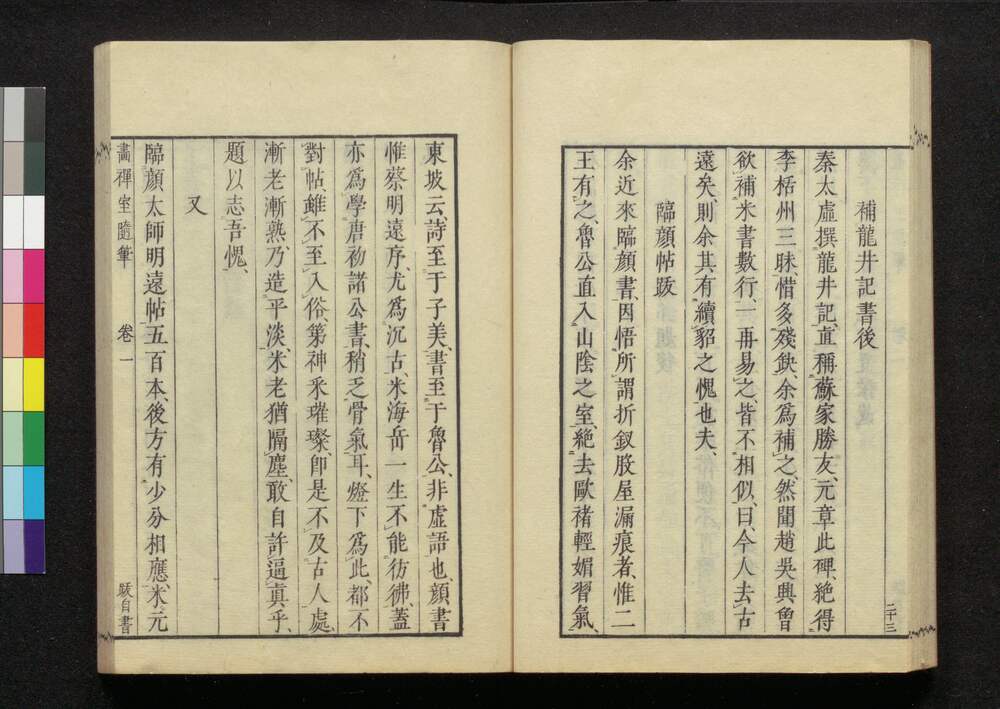 補龍井記書後
秦太虛撰龍井記、直稱蘇家勝友、元章此碑、絶得
李栝州三昧、惜多殘缺、余爲補之、然聞趙吳興曾
欲補米書數行、一再易之、皆不相似、曰、今人去古
遠矣、則余其有續貂之愧也夫、
臨顔帖跋
余近來臨顔書、因悟所謂折釵股屋漏痕者、惟二
王有之、魯公直入山陰之室、絶去歐褚輕媚習氣、
二十三
東坡云、詩至于子美、書至于魯公、非虛語也、顔書
惟蔡明遠序、尤爲沉古、米海岳一生不能彷彿、蓋
亦爲學唐初諸公書、稍乏骨氣耳、燈下爲此、都不
對帖、雖不至入俗、第神釆璀璨、卽是不及古人處、
漸老漸熟、乃造平淡、米老猶隔塵、敢自許逼眞乎、
題以志吾愧、
又
臨顔太師明遠帖五百本、後方有少分相應、米元
畫禪室隨筆 卷一 跋自書